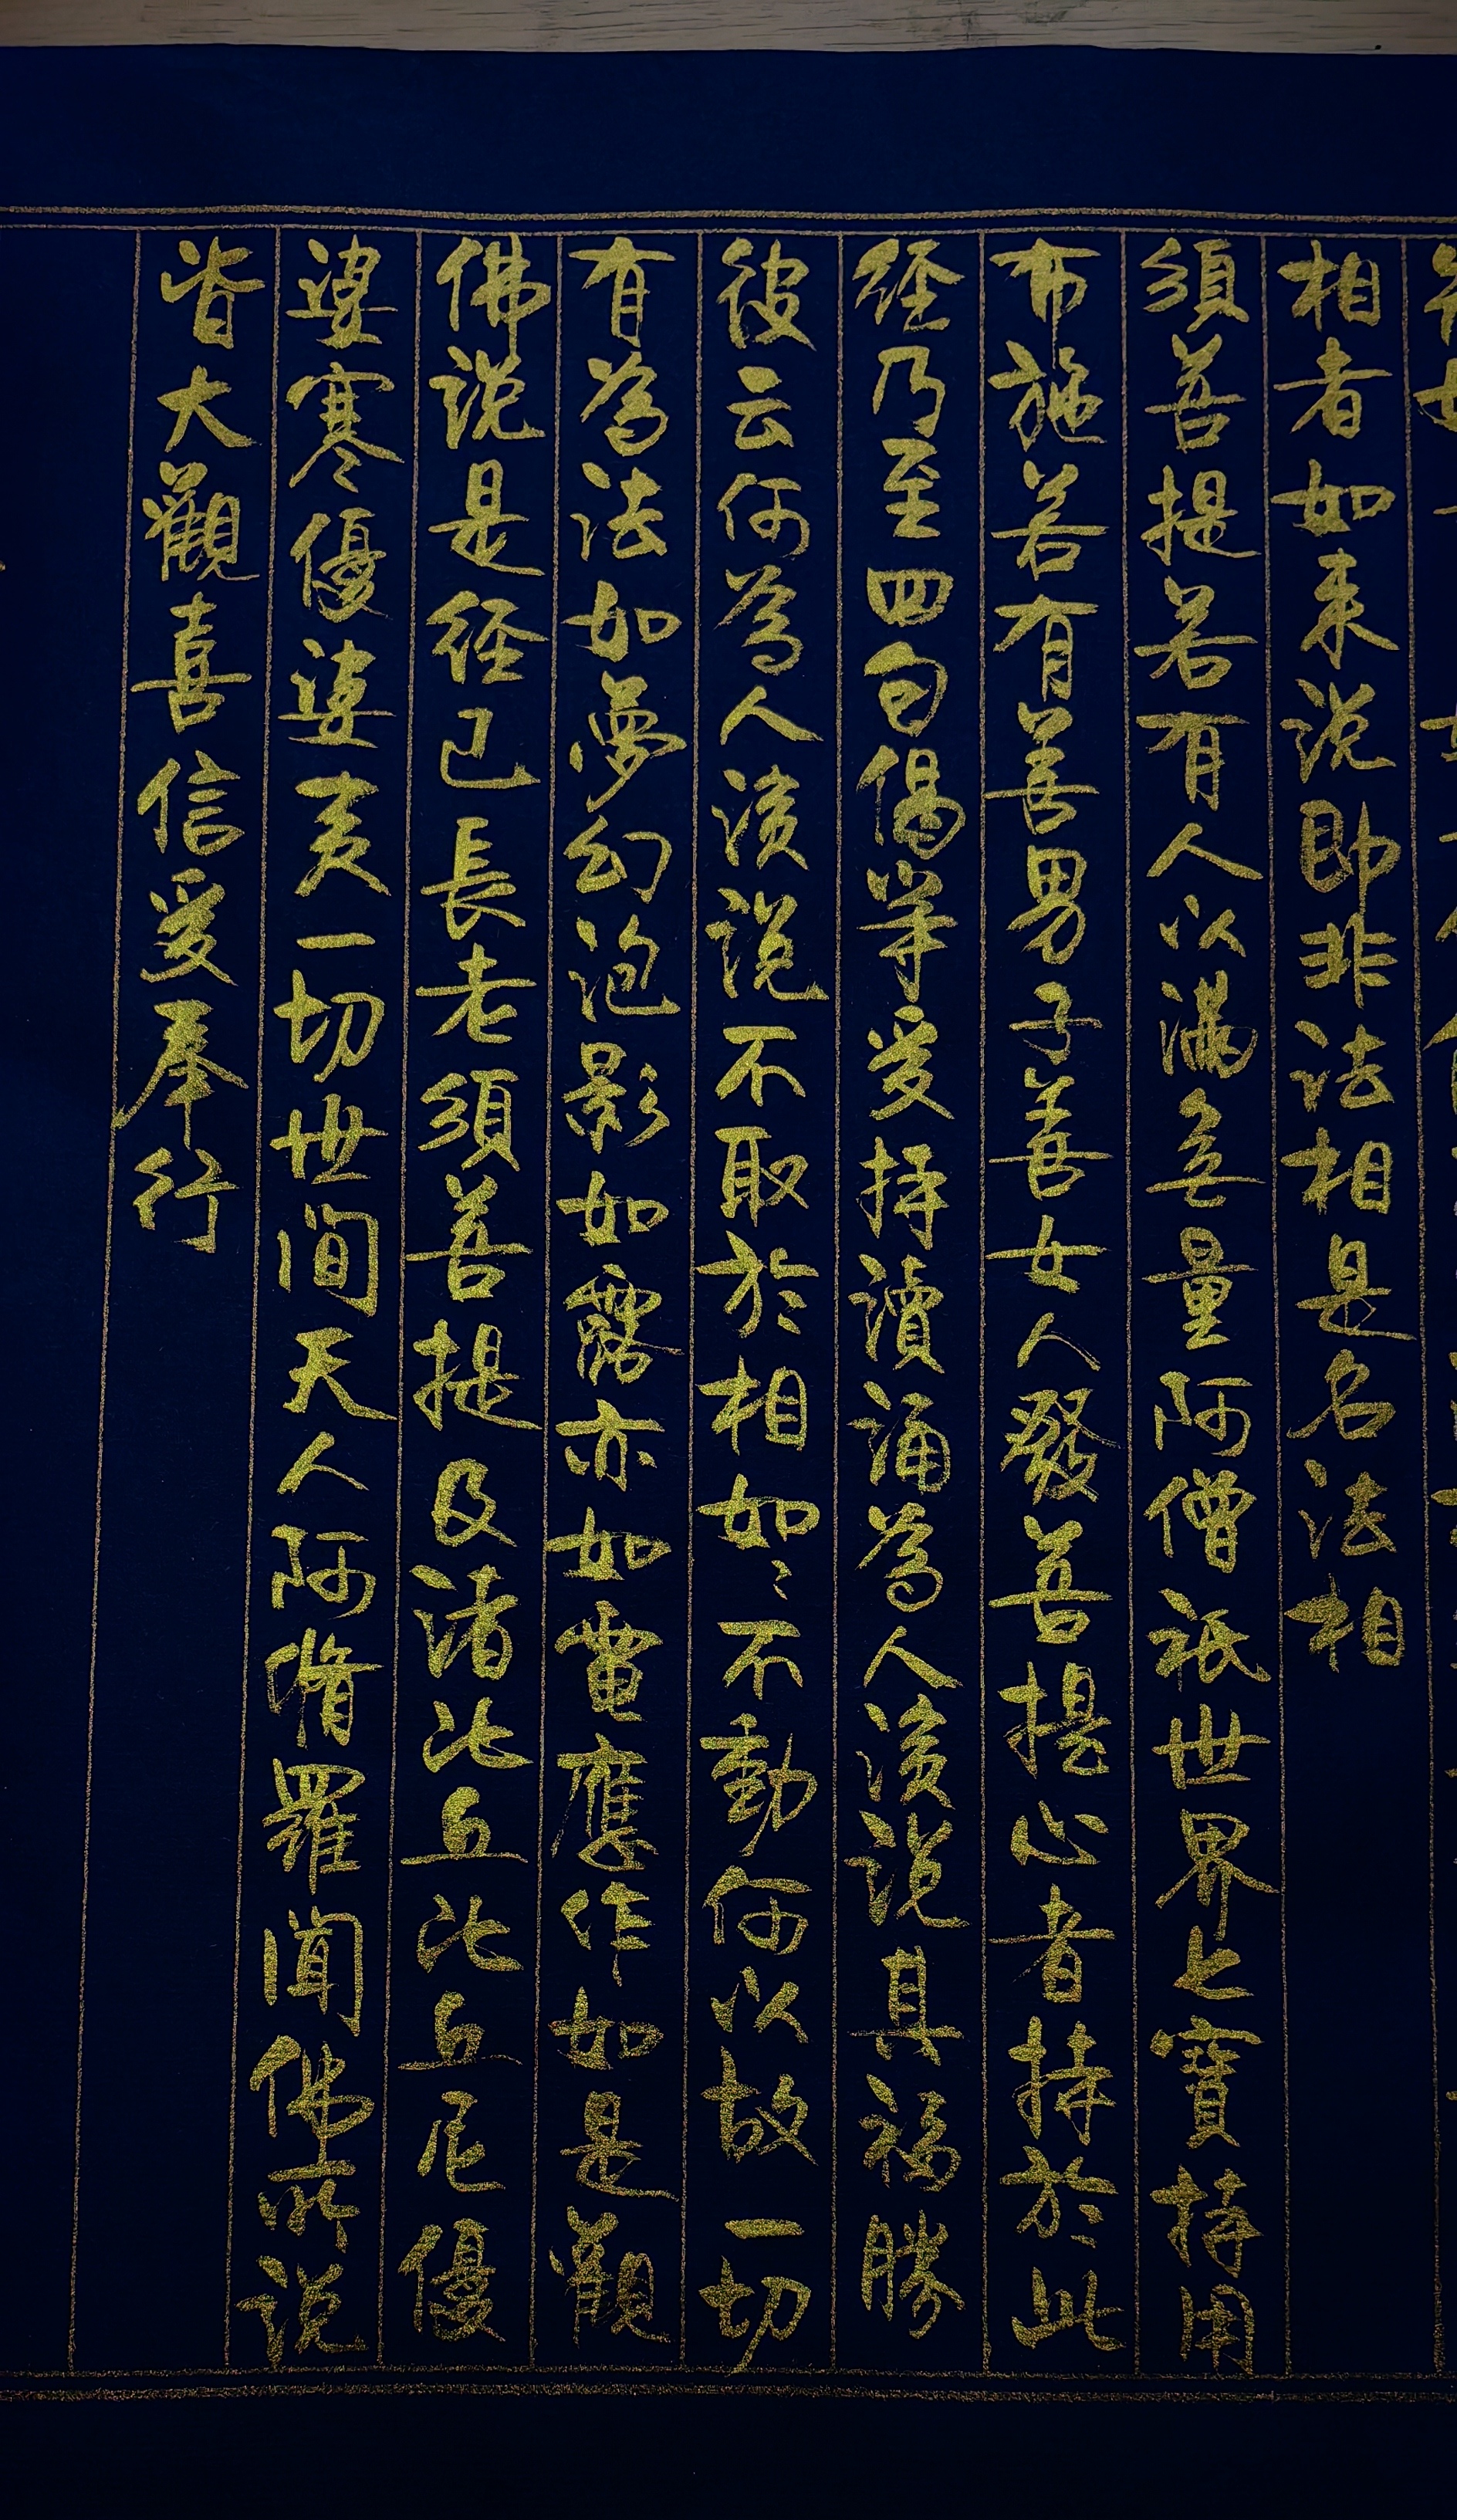 相者如来説即非法相是名法相
須菩提若有人以滿無量阿僧祇世界七寶持用
布施若有善男子善女人發菩提心者持於此
経乃至四句偈等受持讀誦為人演説其福勝
彼云何為人演説不取於相如々不動何以故一切
有為法如夢幻泡影如露亦如電應作如是觀
佛説是経已長老須菩提及諸比丘比丘尼優
婆塞優婆夷一切世間天人阿脩羅聞佛所説
皆大觀喜信受奉行